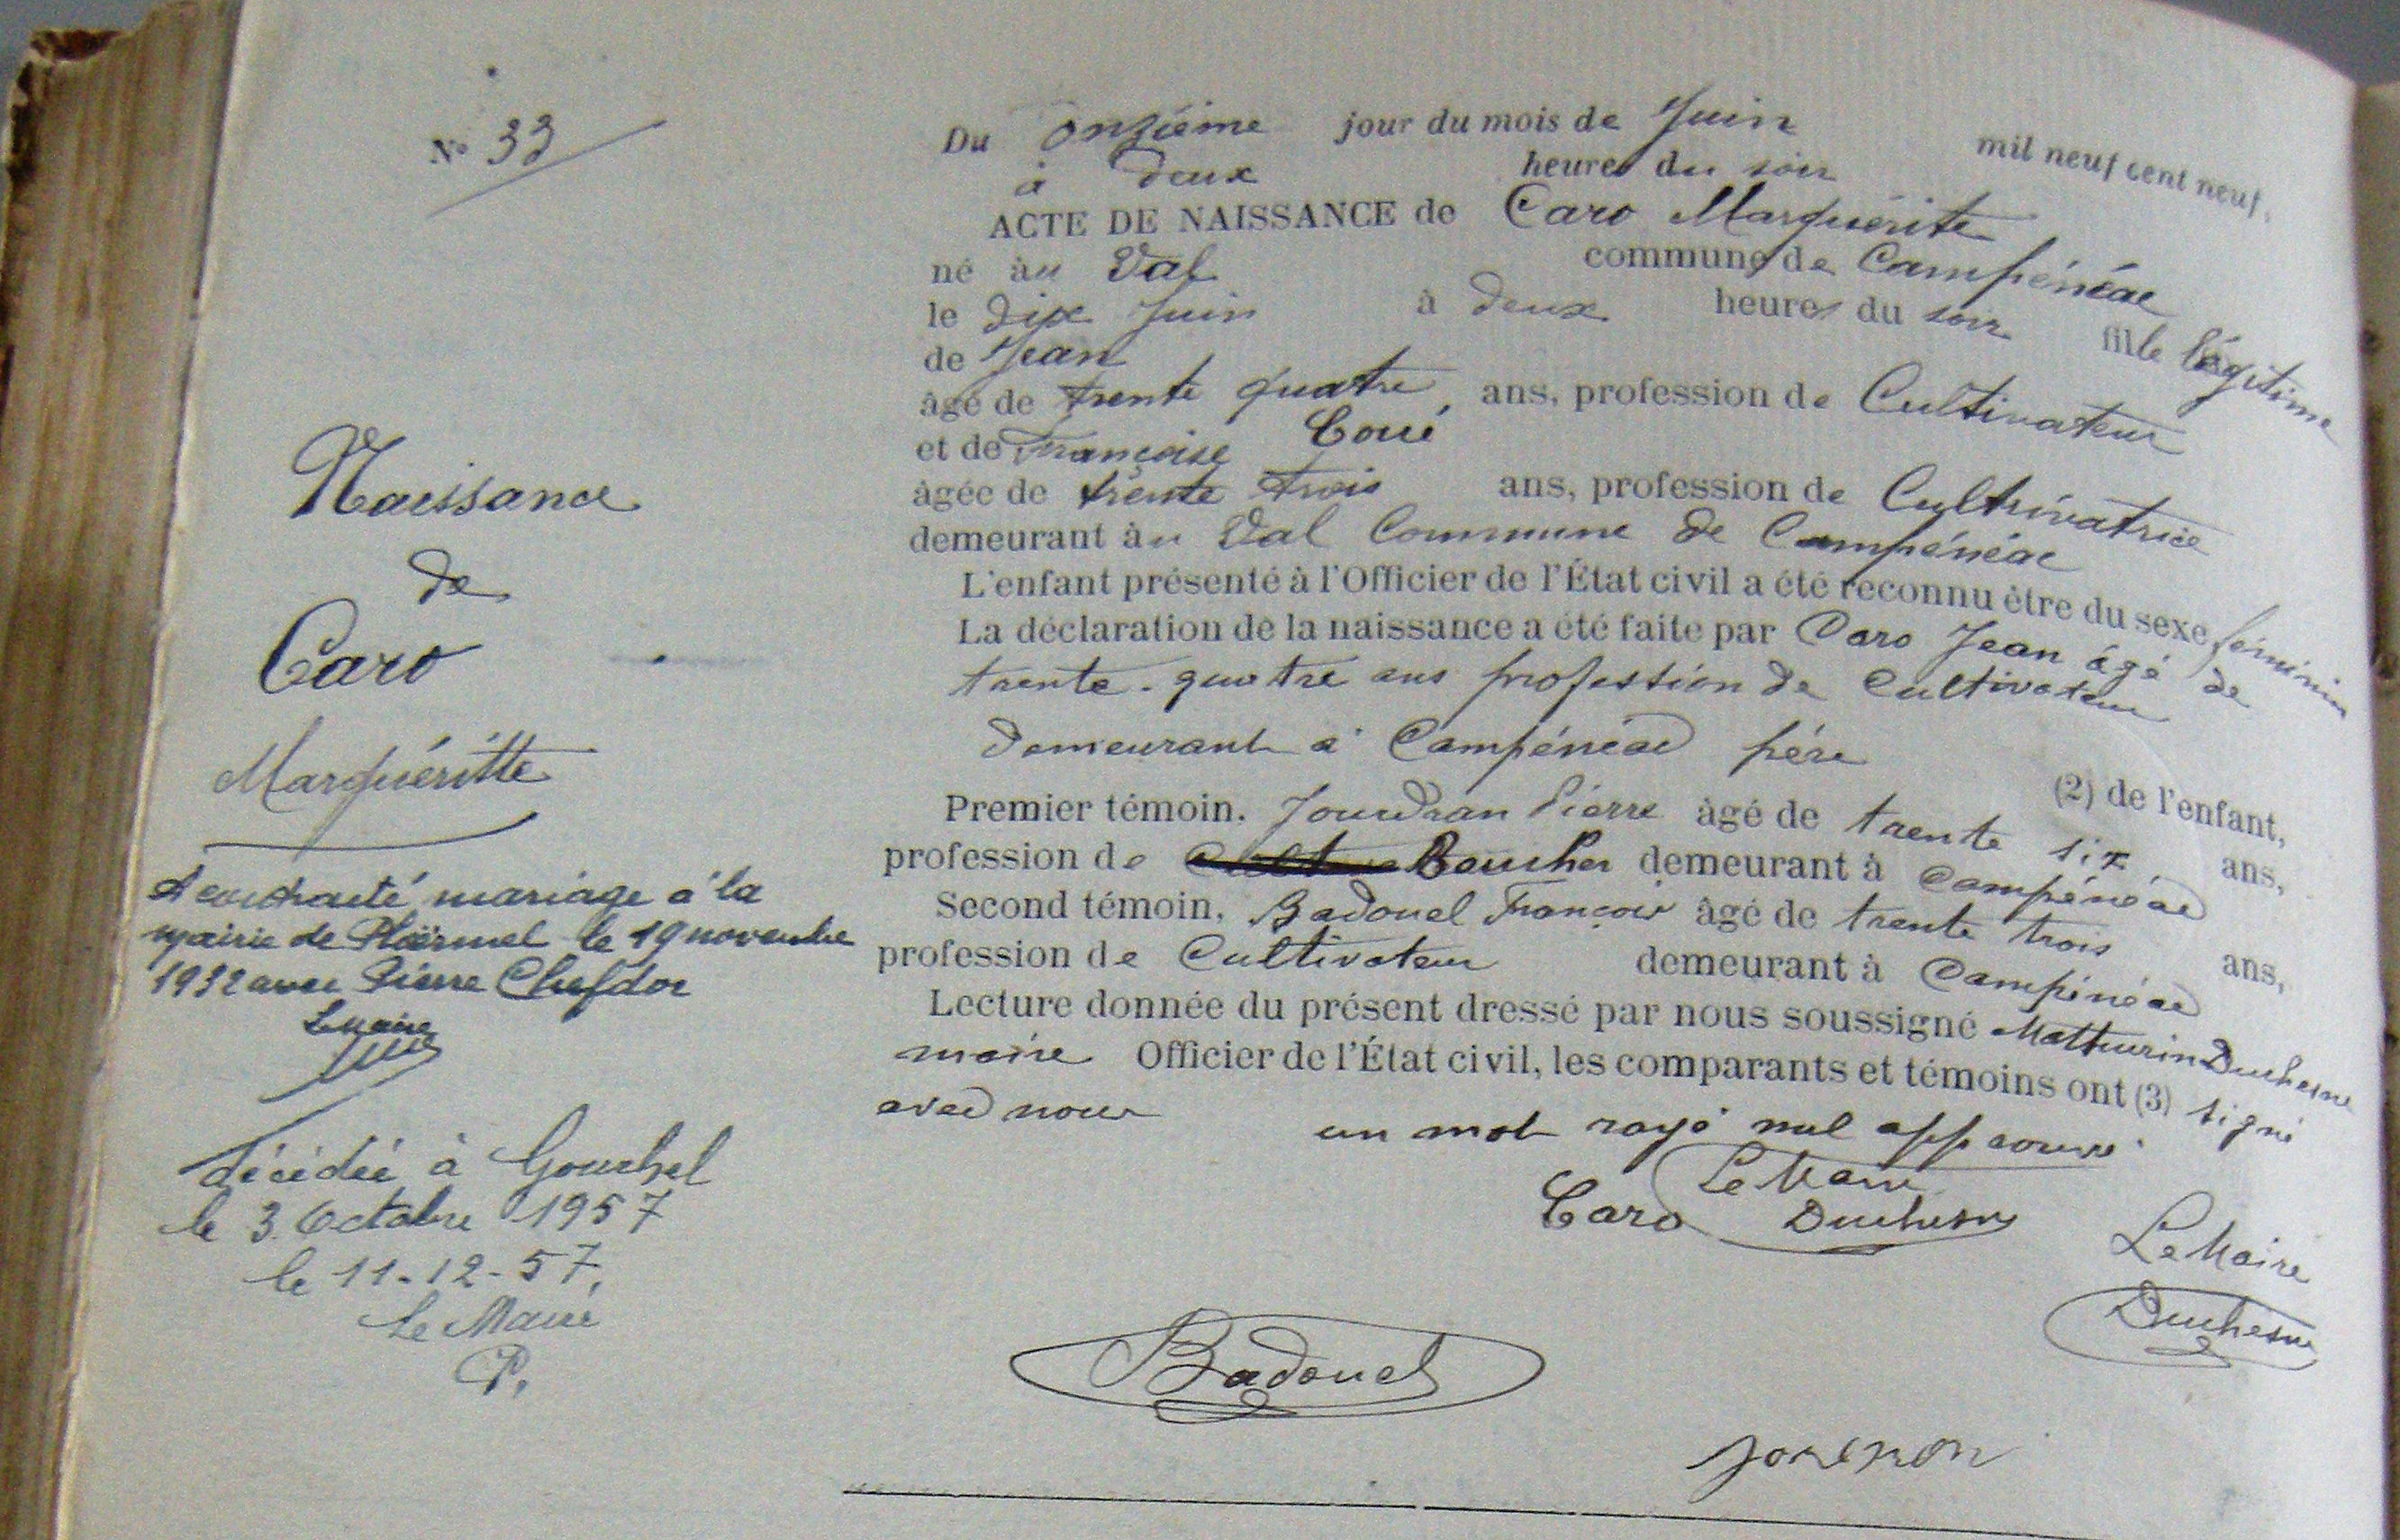 N° 33
Du onzième jour du mois de Juin mil neuf cent neuf,
à deux heures du soir
ACTE DE NAISSANCE de Caro Marguérite
né àu Val commune de Campénéac
le dix Juin à deux heures du soir fille légitime
de Jean
âgé de trente quatre ans, profession de Cultivateur
et de Françoise Coué
âgée de trente trois ans, profession de Cultivatrice
demeurant àu Val Commune de Campénéac
L'enfant présenté à l'Officier de l'État civil a été reconnu être du sexe féminin
La déclaration de la naissance a été faite par Caro Jean âgé de
trente-quatre ans profession de Cultivateur
demeurant à Campénéac père (2) de l'enfant,
Premier témoin, Jourdran Pierre âgé de trente six ans,
profession de Boucher demeurant à Campénéac
Second témoin, Badouel François âgé de trente trois ans,
profession de Cultivateur demeurant à Campénéac
Lecture donnée du présent dressé par nous soussigné Mathurin Duchesne
maire Officier de l'État civil, les comparants et témoins ont (3) signé
avec nous
un mot rayé nul approuvé
Le Maire
Caro Duchesne
Le Maire
Duchesne
Badouel
Naissance
de
Caro
Marguéritte
A contracté mariage à la
mairie de Ploërmel le 19 novembre
1932 avec Pierre Chefdor
Le maire
décédée à Gourhel
le 3 Octobre 1957
le 11-12-57,
Le Maire
P.